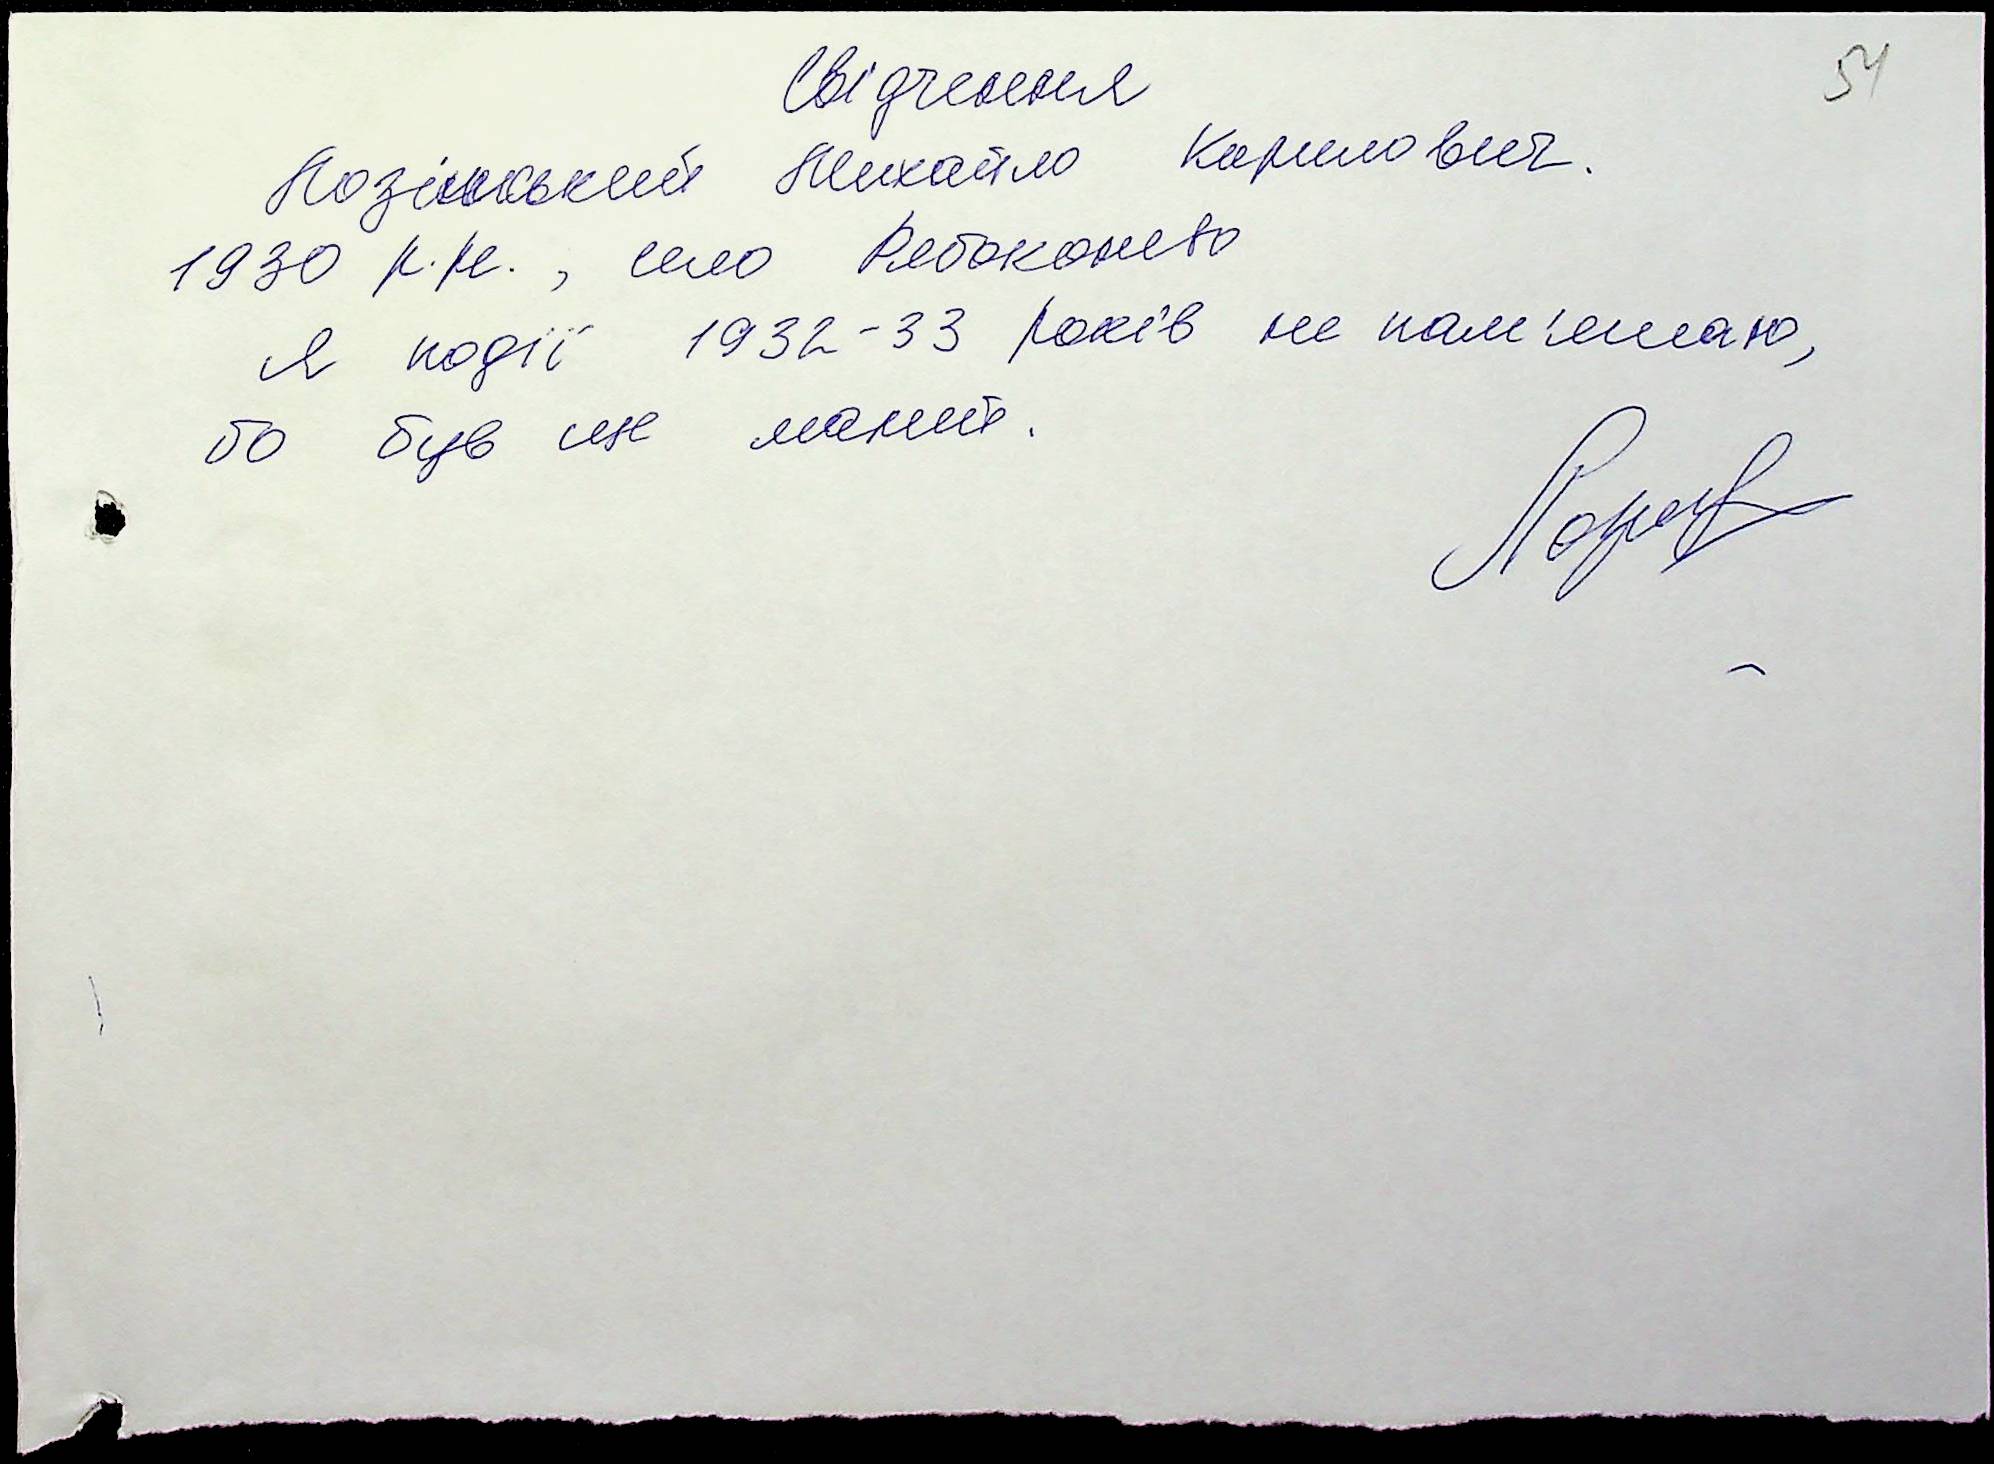 54
Свідчення
Позінський Михайло Карилович.
1930 р.н., село Рябоконево
Я події 1932-33 років не пам'ятаю,
бо був ще малий.